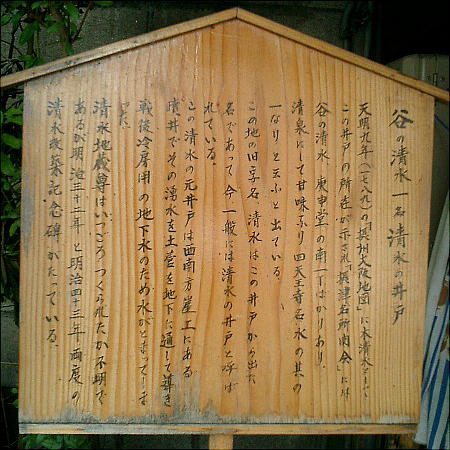 谷の清水 一名 清水の井戸
天明九年(一七八九)の「摂州大阪地図」に本清水として
この井戸の所在が示され「摂津名所図会」には
谷の清水 庚申堂の南一丁ばかりあり、
清泉にして甘味なり 四天王寺名水の其の
一なりと云ふと出ている。
この地の旧字名、清水はこの井戸から出た
名であって今一般には清水の井戸と呼ば
れている。
この清水の元井戸は西南方崖上にある
墳井でその湧水を土管を地下に通して導き
戦後冷房用の地下水のため水がとまってしま
った。
清水地蔵尊はいつごろつくられたか不明で
あるが明治三十二年と明治四十三年両度の
清水改築記念碑がたっている。